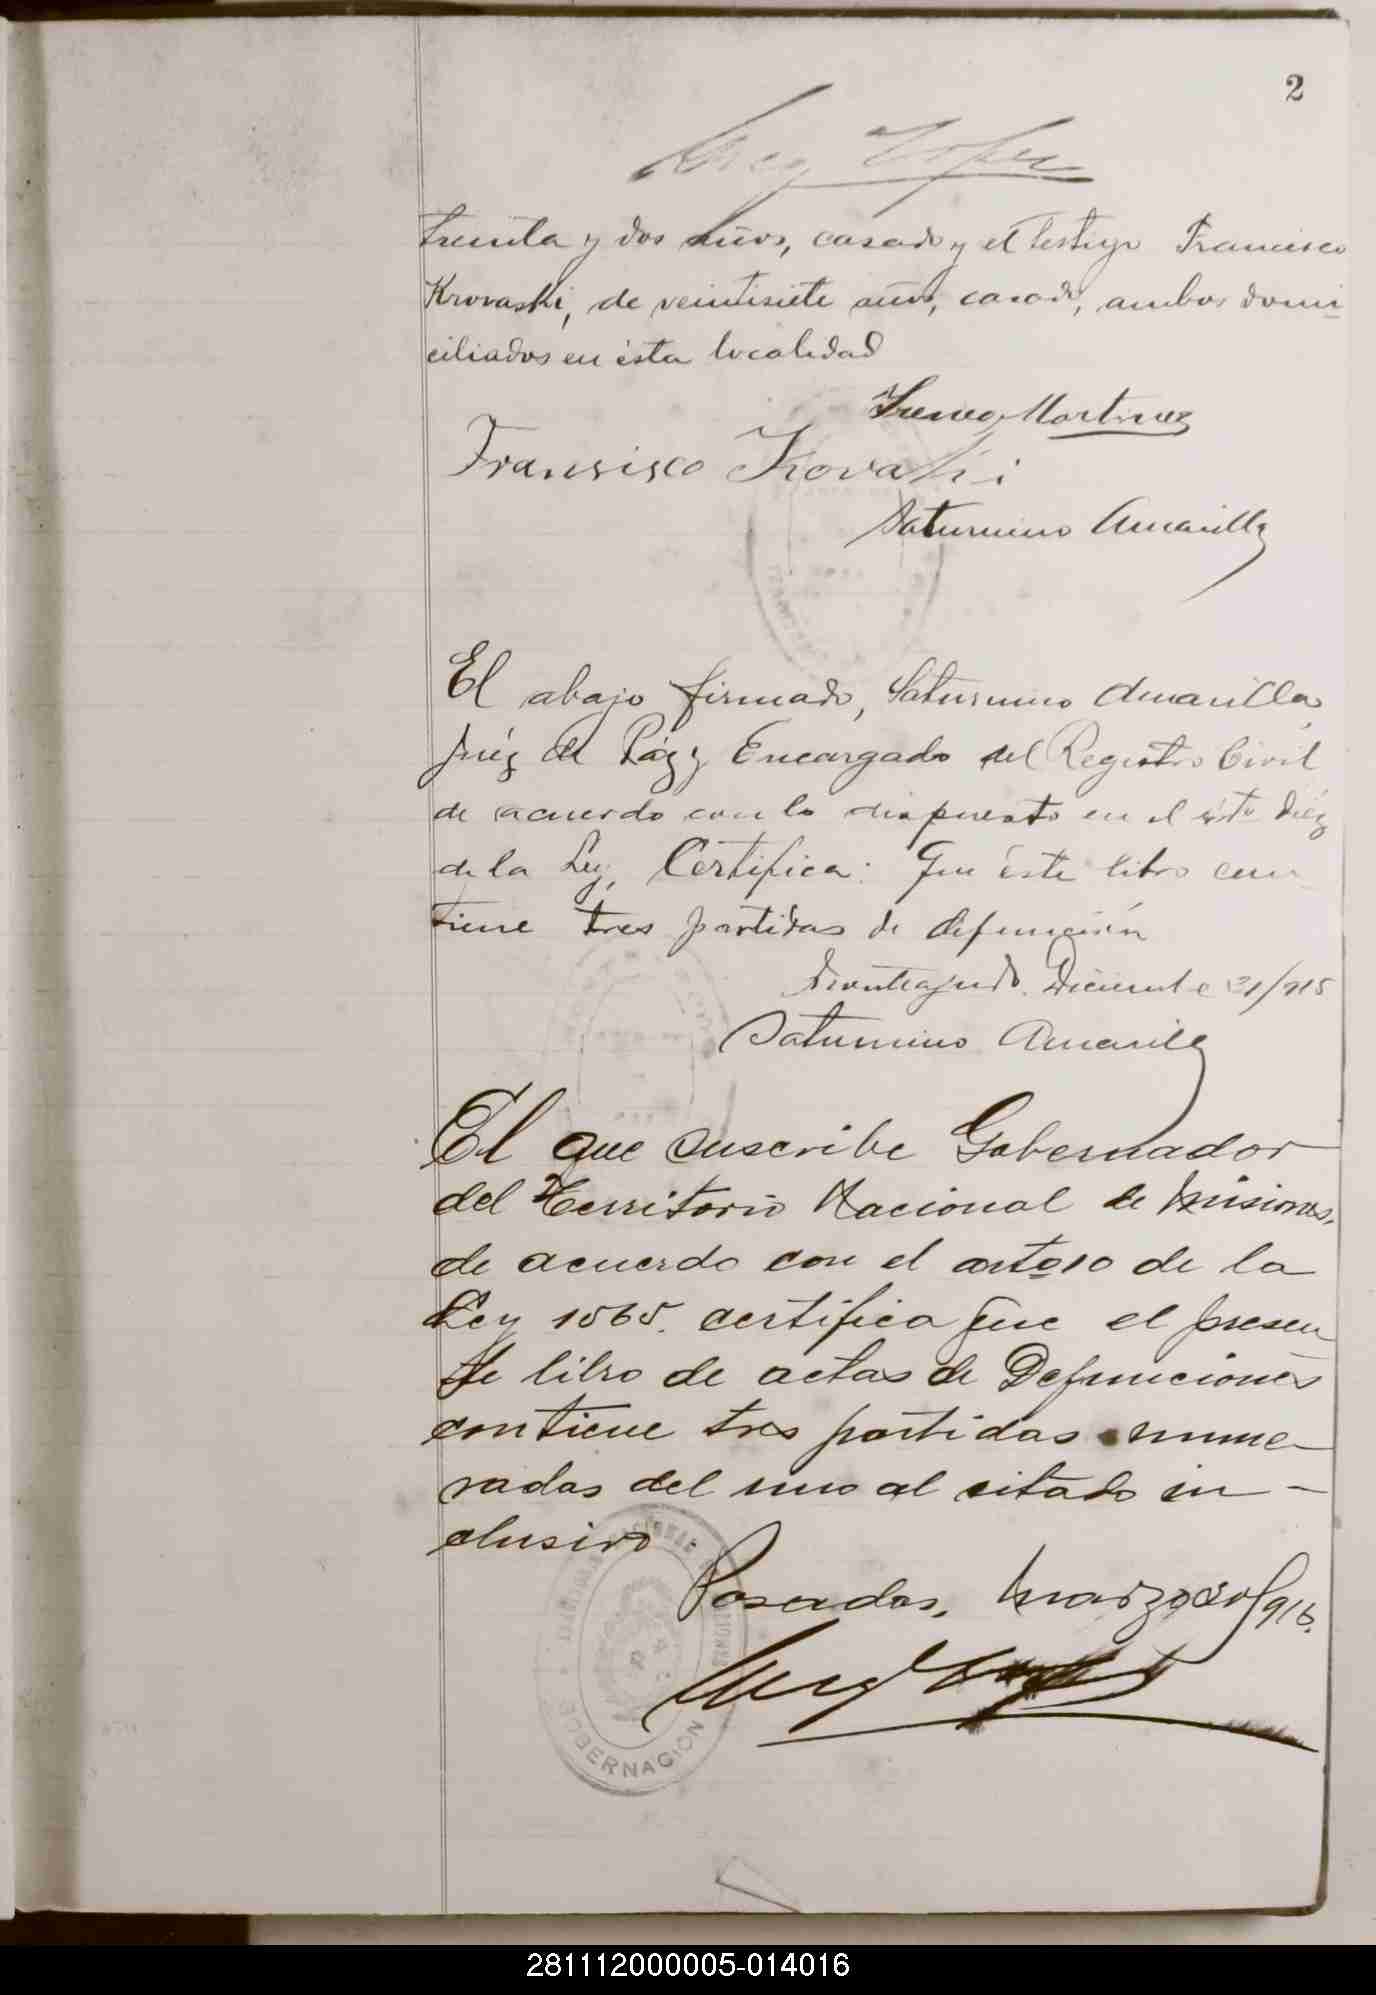 2
treinta y dos años, casado y el testigo Francisco
Krovaski, de veintisiete años, casado, ambos domi-
ciliados en ésta localidad
Ireneo Martinez
Fransisco Kovaski
Saturnino Amarilla
El abajo firmado, Saturnino Amarilla
Juéz de Páz y Encargado del Registro Civil
de acuerdo con lo dispuesto en el arto diéz
de la Ley, Certifica: Que éste libro con-
tiene tres partidas de defunción
Diciembre 31/915
Saturnino Amarilla
El que suscribe Gobernador
del Territorio Nacional de Misiones,
de acuerdo con el arto 10 de la
Ley 1565. certifica que el presen
te libro de actas de Defunciones
contiene tres partidas nume-
radas del uno al citado in-
clusivo.
Posadas, Marzo 20/916.
GOBERNACIÓN
281112000005-014016